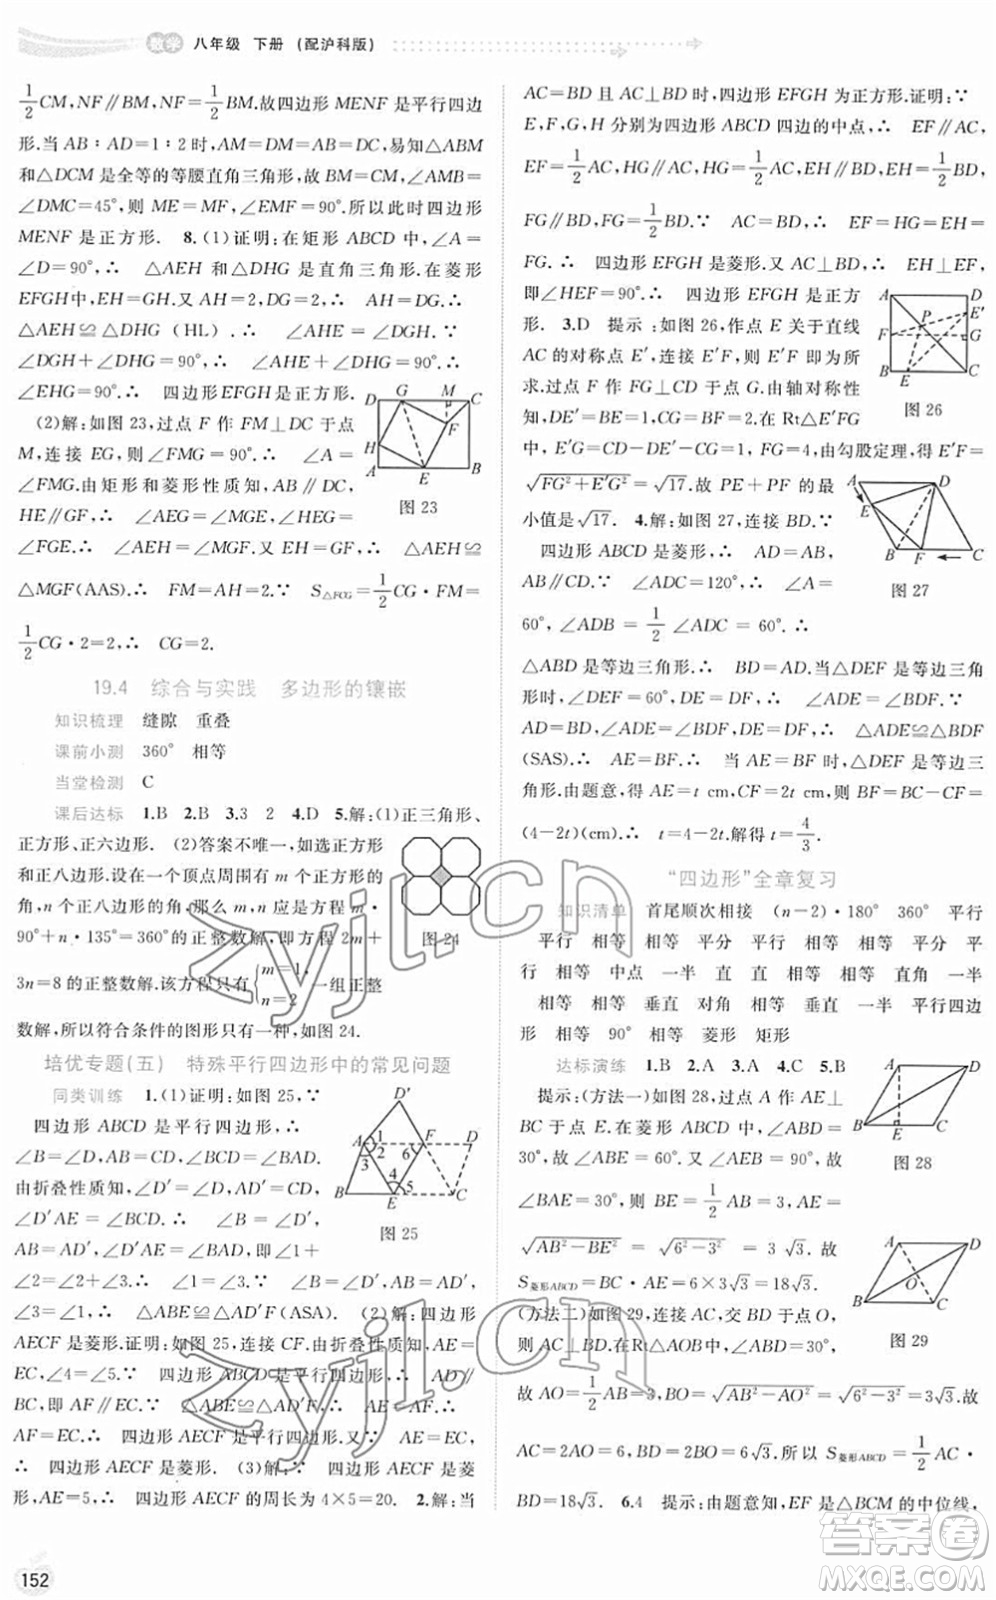 数学 八年级 下册 (配沪科版)
1/2CM,NF∥BM,NF=1/2BM.故四边形 MENF 是平行四边
形.当 AB∶AD=1∶2 时,易知△ABM
和△DCM 是全等的等腰直角三角形,故 BM=CM,∠AMB
=∠DMC=45°,则 ME=MF,∠EMF=90°.所以此时四边形
MENF 是正方形. 8.(1)证明:在矩形 ABCD 中,∠A=
∠D=90°,∴ △AEH 和△DHG 是直角三角形.在菱形
EFGH中,EH=GH.又∵ AE=DH,∴ AH=DG.∴
△AEH≌△DHG (HL). ∴ ∠AHE =∠DGH. ∵
∠DGH+∠DHG=90°,∴ ∠AHE+∠DHG=90°.∴
∠EHG=90°.∴ 四边形EFGH 是正方形.
(2)解:如图 23,过点 F 作 FM⊥DC 于点
M,连接 EG,则∠FMG=90°.∴ ∠A=
∠FMG.由矩形和菱形性质知,AB∥DC,
HE∥GF,∴ ∠AEG=∠MGE,∠HEG=
∠FGE.∴ ∠AEH=∠MGF.又∵ EH=GF,∴ △AEH≌
△MGF(AAS).∴ FM=AH=2. ∵ S△FCG=1/2CG·FM=
1/2CG·2=2,∴ CG=2.
D G M C
F
H
A E B
图 23
19.4 综合与实践 多边形的镶嵌
知识梳理 缝隙 重叠
课前小测 360° 相等
当堂检测 C
课后达标 1.B 2.B 3.3 2 4.D 5.解:(1)正三角形、
正方形、正六边形. (2)答案不唯一,如选正方形
和正八边形.设在一个顶点周围有 m 个正方形的
角,n 个正八边形的角,那么 m,n 应是方程 m·
90°+n·135°=360°的正整数解,即方程 2m+
3n=8 的正整数解.该方程只有{m=1, n=2 一组正整
数解,所以符合条件的图形只有一种,如图 24.
图 24
培优专题(五) 特殊平行四边形中的常见问题
同类训练 1.(1)证明:如图 25,∵
四边形 ABCD 是平行四边形,∴
∠B=∠D,AB=CD,∠BCD=∠BAD.
由折叠性质知,∠D=∠D′,AD′=CD,
∠D′AE=∠BCD.∴ ∠B=∠D′,
AB=AD′,∠BAD=∠D′AE,即∠1+
∠2=∠2+∠3.∴ ∠1=
∠3.∴ △ABE≌△AD′F(ASA). (2)解:四边形
AECF 是菱形.证明:如图 25,连接 CF.由折叠性质知,AE=
EC,∠4=∠5.∵ 四边形 ABCD 是平行四边形,∴ AD∥
BC.∴ ∠5=∠6.∴ ∠4=∠6.∴ AF=AE.∵ AE=EC,∴
AF=EC.∴ 四边形 AECF 是平行四边形.又∵ AF=AE,∴
四边形 AECF 是菱形. (3)解:∵ 四边形 AECF 是菱
形,AE=5,∴ 四边形 AECF 的周长为 4×5=20. 2.解:当
D′
A 1 2 3 F 6 D
B E 4 5 C
图 25
152
AC=BD 且 AC⊥BD 时,四边形 EFGH 为正方形.证明:∵
E,F,G,H 分别为四边形 ABCD 四边的中点,∴ EF∥AC,
EF=1/2AC,HG∥AC,HG=1/2AC,EH∥BD,EH=1/2BD,
FG∥BD,FG=1/2BD.∵ AC=BD,∴ EF=HG=EH=
FG.∴ 四边形 EFGH 是菱形.又∵ AC⊥BD,∴ EH⊥EF,
即∠HEF=90°.∴ 四边形 EFGH 是正方
形. 3.D 提示:如图 26,作点 E 关于直线
AC 的对称点 E′,连接 E′F,则 E′F 即为所
求.过点 F 作 FG⊥CD 于点 G.由轴对称性
知,DE′=BE=1,CG=BF=2.在 Rt△E′FG
中,E′G=CD-DE′-CG=4-1-2=1,FG=4,由勾股定理,得 E′F=
√FG²+E′G²=√17.故 PE+PF 的最
小值是√17. 4.解:如图 27,连接 BD.∵
四边形 ABCD 是菱形,∴ AD=AB,
AB∥CD.∵ ∠ADC=120°,∴ ∠A=
60°,∠ADB=1/2∠ADC=60°.∴
△ADB是等边三角形.∴ BD=AD.∵ △DEF 是等边三角
形,∴ ∠EDF=60°,DE=DF,∴ ∠ADE=∠BDF.∵
AD=BD,∠ADE=∠BDF,DE=DF,∴ △ADE≌△BDF
(SAS).∴ AE=BF.∴ 当 △DEF 为等边三
角形时,AE=BF.由题意,得 AE=t cm,BF=BC-CF=
(4-2t)(cm).∴ t=4-2t.解得 t=4/3.
A D
E′
P
F G
B E C
图 26
A D
E
B F C
图 27
“四边形”全章复习
知识清单 首尾顺次相接 (n-2)·180° 360° 平行
平行 相等 相等 平分 平行 相等 相等 平分 平
行 相等 中点 一半 直 直 相等 相等 直角 一半
相等 相等 垂直 对角 相等 垂直 一半 平行四边
形 相等 90° 相等 菱形 矩形
达标演练 1.B 2.A 3.A 4.C 5.B
提示:(方法一)如图 28,过点 A 作 AE⊥
BC 于点 E.在菱形 ABCD 中,∵ ∠ABD=
30°,∴ ∠ABC=60°.又∵ ∠AEB=90°,故
∠BAE=30°,则 BE=1/2AB=3,故 AE=
√AB²-BE²=√6²-3²=3√3.故
S菱形ABCD=BC·AE=6×3√3=18√3.
(方法二)如图 29,连接 AC,交 BD 于点 O,
则 AC⊥BD.在 Rt△AOB中,∵ ∠ABO=30°,
故 AO=1/2AB=3.∴ BO=√AB²-AO²=√6²-3²=3√3.则
AC=2AO=6,BD=2BO=6√3.所以 S菱形ABCD=1/2AC·
BD=18√3. 6.4 提示:由题意知,EF 是△BCM 的中位线,
A D
B E C
图 28
A D
O
B C
图 29
zyjl.cn
zyjl.cn
答案圈
MXQE.COM